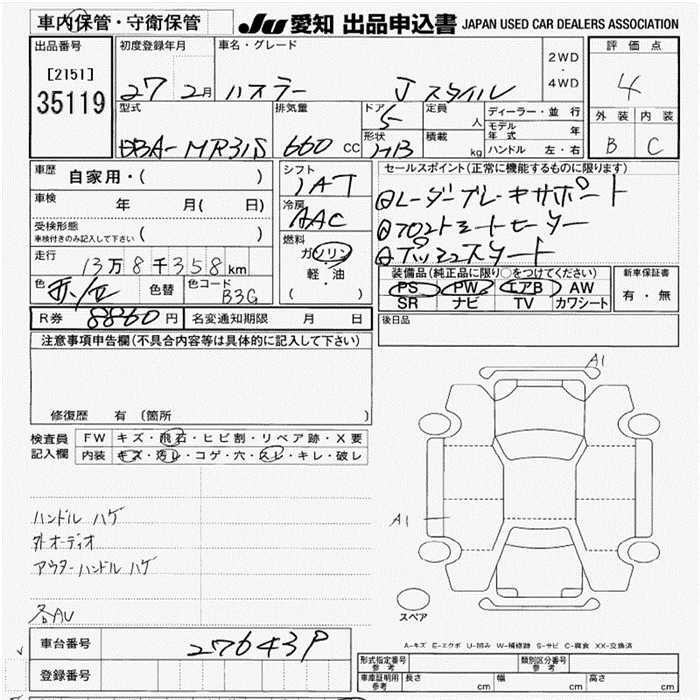 車内保管・守衛保管 JU 愛知 出品申込書 JAPAN USED CAR DEALERS ASSOCIATION
出品番号 初度登録年月 車名・グレード 評価点
[2151]
35119
27 2月 ハスラー Jスタイル 2WD ・ 4WD 4
型式 排気量 ドア 定員 ディーラー・並行 外装 内装
DBA-MR31S 660 CC 5 人 モデル年式 年 B C
形状 積載 ハンドル 左・右
HB kg
車歴 自家用・( ) シフト セールスポイント(正常に機能するものに限ります)
IAT
車検 年 月( 日) 冷房 AAC
@レーダーブレーキサポート
受検形態 ( )
車検付きのみ記入して下さい
@フロントシートヒーター
燃料 ガソリン
@プッシュスタート
走行 13万8千358km 軽・油
( )
装備品(純正品に限り○をつけてください) 新車保証書
色 赤/ 色替 色コード B3G
PS PW エアB AW 有・無
SR ナビ TV カワシート
R券 8860円 名変通知期限 月 日 後日品
注意事項申告欄(不具合内容等は具体的に記入して下さい)
修復歴 有(箇所 )
A1
検査員記入欄 FW キズ・飛石・ヒビ割・リペア跡・X要
内装 キズ・汚レ・コゲ・穴・スレ・キレ・破レ
ハンドル ハゲ
A1
外オーディオ
アウターハンドル ハゲ
各AU
スペア
車台番号 27643P
A-キズ E-エクボ U-凹み W-補修跡 S-サビ C-腐食 XX-交換済
登録番号
形式指定番号 参考 類別区分番号 参考
車庫証明用 参考 長さ cm 幅 cm 高さ cm